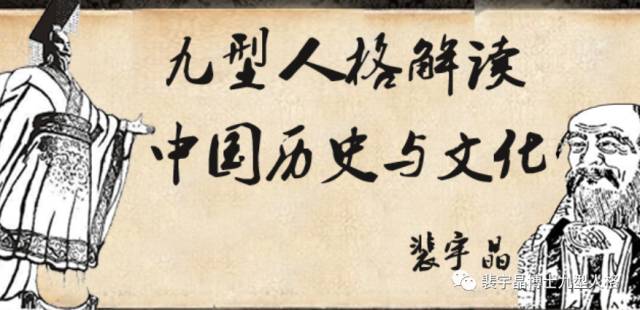 九型人格解读
中国历史与文化
裴宇晶
裴宇晶博士九型人格